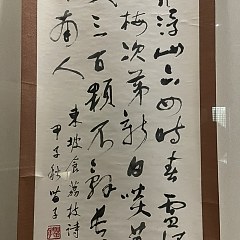 浮山下四時春盧
梅次第新日啖
三百顆不辭長
南人
東坡食荔枝詩
甲子秋